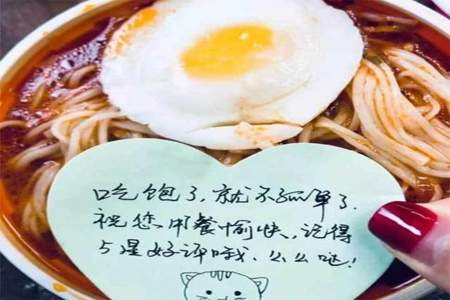 吃饱了,就不孤单了.
祝您用餐愉快,记得
5星好评哦,么么哒!